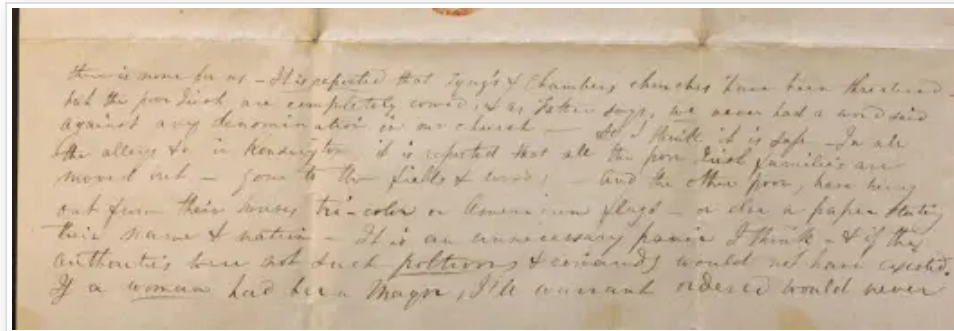 there is none for us - It is reported that Tyng's & Chambers churches have been threatened -
but the poor Irish, are completely cowed, & as Father says, we never had a word said
against any denomination in our church - So I think it is safe - In all
the alleys &c in Kensington it is reported that all the poor Irish families are
moved out - gone to the fields & woods, - and the other poor, have hung
out from their houses tri-color or American flags - or else a paper stating
their name & nation - It is an unnecessary panic I think - & if the
authorities were not such poltroons & cowards would not have existed.
If a woman had been Mayor, I'll warrant ordered would never